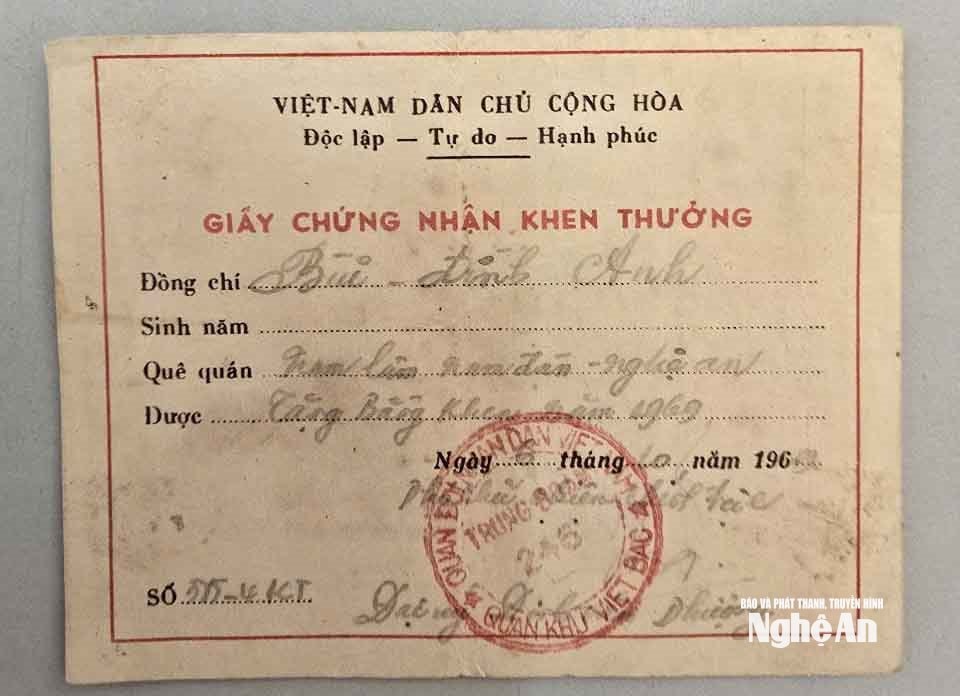 VIỆT-NAM DÂN CHỦ CỘNG HÒA
Độc lập — Tự do — Hạnh phúc
GIẤY CHỨNG NHẬN KHEN THƯỞNG
Đồng chí Bùi - đình Anh
Sinh năm
Quê quán Nam - nam đàn - nghệ an
Được Tặng Bằng Khen năm 1969
Ngày tháng 10 năm 196
QUÂN ĐỘI NHÂN DÂN VIỆT NAM
TRUNG ĐOÀN
246
QUÂN KHU VIỆT BẮC
SỐ
BÁO VÀ PHÁT THANH, TRUYỀN HÌNH
Nghệ An